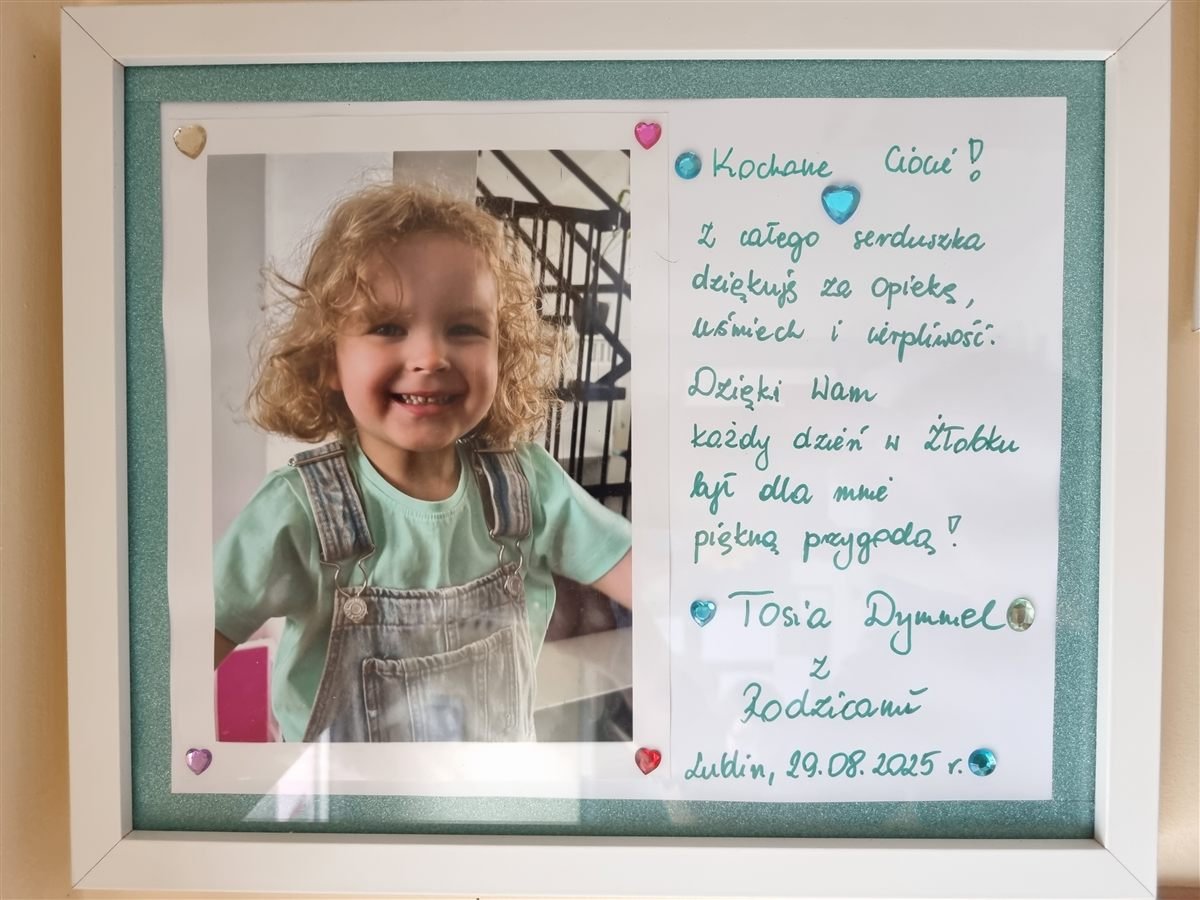 Kochane Ciocie!
Z całego serduszka
dziękuję za opiekę,
uśmiech i cierpliwość.
Dzięki Wam
każdy dzień w Żłobku
był dla mnie
piękną przygodą!
Tosia Dymmel
z
Rodzicami
Lublin, 29.08.2025 r.